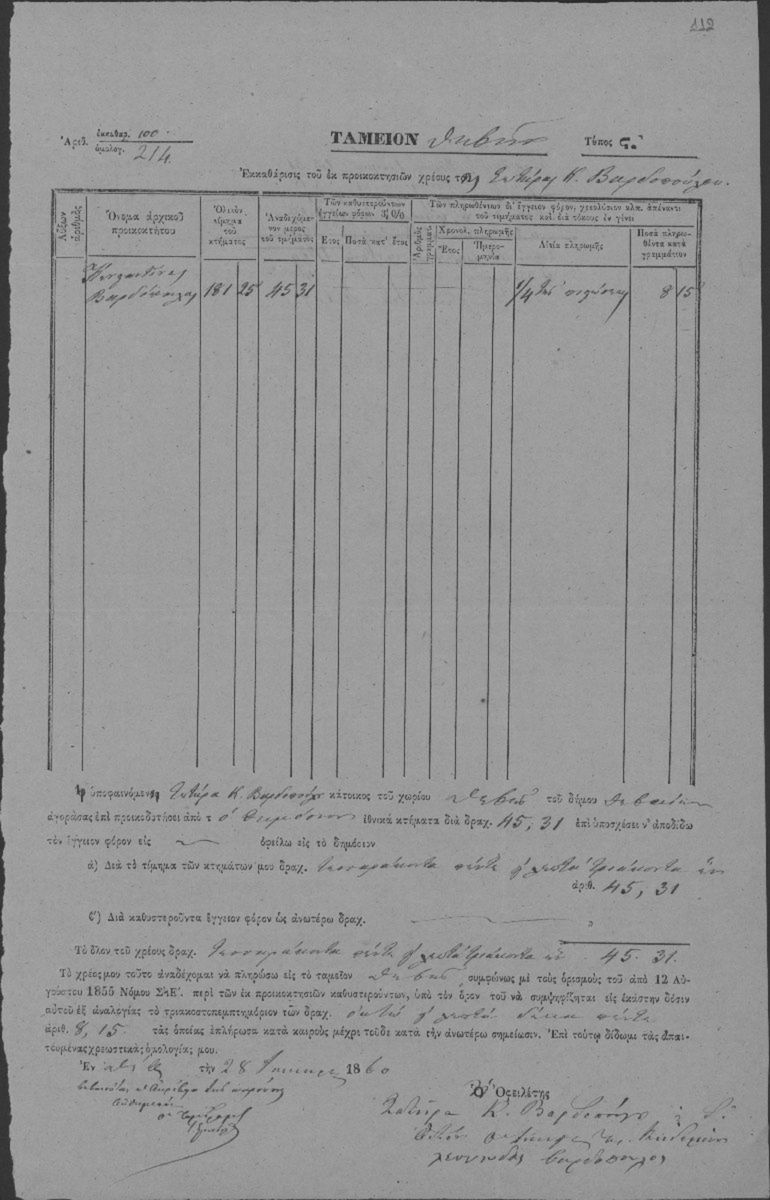 112
Ἀριθ. ἐκκαθαρ. 100
ὁμολογ. 214
ΤΑΜΕΙΟΝ Θηβῶν Τύπος Ϛ.
Ἐκκαθάρισις τοῦ ἐκ προικοκτησιῶν χρέους τῆς Σωτήρας Κ. Βαρδοπούλου.
Αὔξων ἀριθμὸς
Ὄνομα ἀρχικοῦ προικοκτήτου
Ὁλικὸν τίμημα τοῦ κτήματος
Ἀναδεχόμενον μέρος τοῦ τιμήματος
Τῶν καθυστερούντων ἐγγείων φόρων 3 0/0
Ἔτος
Ποσὰ κατ' ἔτος
Τῶν πληρωθέντων δι' ἔγγειον φόρον, γεωλύσιον κλπ. ἀπέναντι τοῦ τιμήματος καὶ διὰ τόκους ἐν γένει
Ἀριθμὸς γραμματ.
Χρονολ. πληρωμῆς
Ἔτος
Ἡμερομηνία
Αἰτία πληρωμῆς
Ποσὰ πληρωθέντα κατὰ γραμμάτιον
Κωνσταντίνος
Βαρδόπουλος 181 25 45 31 1/4 τῆς 8 15
ὑποφαινόμεν Σωτήρα Κ. Βαρδοπούλου κάτοικος τοῦ χωρίου Θηβῶν τοῦ δήμου Θηβαίων
ἀγοράσας ἐπὶ προικοδοτήσει ἀπὸ τ ἐθνικὰ κτήματα διὰ δραχ. 45,31 ἐπὶ ὑποσχέσει ν' ἀποδίδω
τὸν ἔγγειον φόρον εἰς ὀφείλω εἰς τὸ δημόσιον
ά) Διὰ τὸ τίμημα τῶν κτημάτων μου δραχ. τεσσαράκοντα πέντε λεπτὰ τριάκοντα ἓν
ἀριθ. 45,31
β') Διὰ καθυστεροῦντα ἔγγειον φόρον ὡς ἀνωτέρω δραχ.
Τὸ ὅλον τοῦ χρέους δραχ. τεσσαράκοντα πέντε λεπτὰ τριάκοντα ἓν 45. 31.
Τὸ χρέος μου τοῦτο ἀναδέχομαι νὰ πληρώσω εἰς τὸ ταμεῖον Θηβῶν συμφώνως μὲ τοὺς ὁρισμοὺς τοῦ ἀπὸ 12 Αὐ-
γούστου 1855 Νόμου ΣΛΕ'. περὶ τῶν ἐκ προικοκτησιῶν καθυστερούντων, ὑπὸ τὸν ὅρον τοῦ νὰ συμψηφίζηται εἰς ἑκάστην δόσιν
αὐτοῦ ἐξ ἀναλογίας τὸ τριακοστοπεμπτημόριον τῶν δραχ. ὀκτὼ λεπτὰ δέκα πέντε
ἀριθ. 8,15 τὰς ὁποίας ἐπλήρωσα κατὰ καιροὺς μέχρι τοῦδε κατὰ τὴν ἀνωτέρω σημείωσιν. Ἐπὶ τούτῳ δίδωμι τὰς ἀπαι-
τουμένας χρεωστικὰς ὁμολογίας μου.
Ἐν τὴν 28 1860
Ὁ Ὀφειλέτης
Σωτήρα Κ. Βαρδοπούλου
βαρδοπουλος